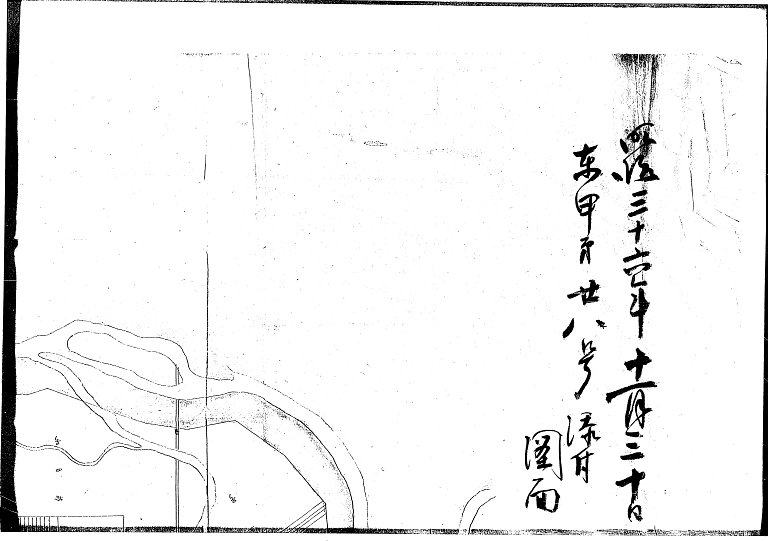 明治三十六年十一月三十日
東甲第廿八号
添付
図面